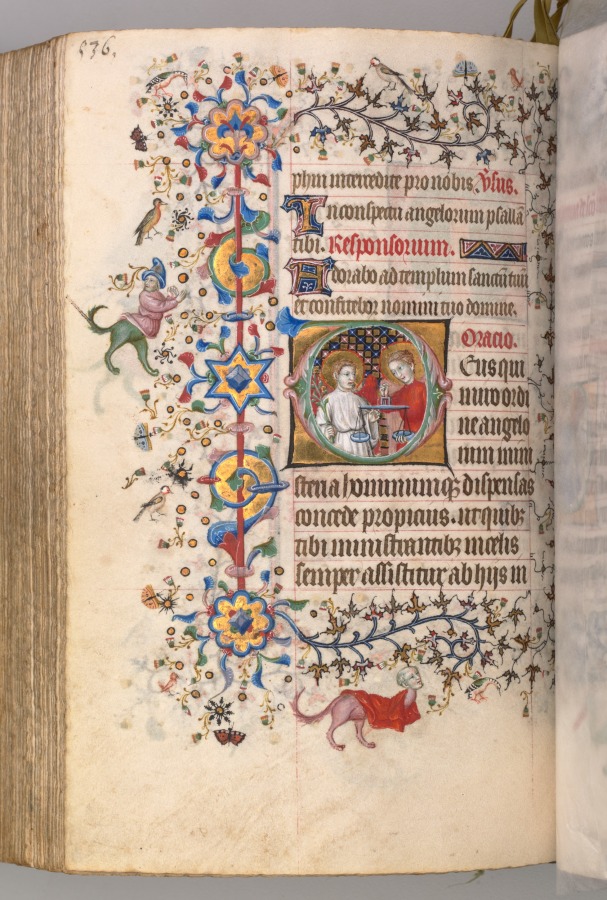 536.
phim intercedite pro nobis. V̄sus.
In conspectu angelorum psallā
tibi. Responsorium.
Adorabo ad templum sanctū tuū
et confitebor nomini tuo domine.
Oracio.
Deus qui
miro ordi
ne angelo
rum mini
steria hominumqꝫ dispensas
concede propicius. ut quibꝫ
tibi ministrantibꝫ in celis
semper assistitur ab hijs in